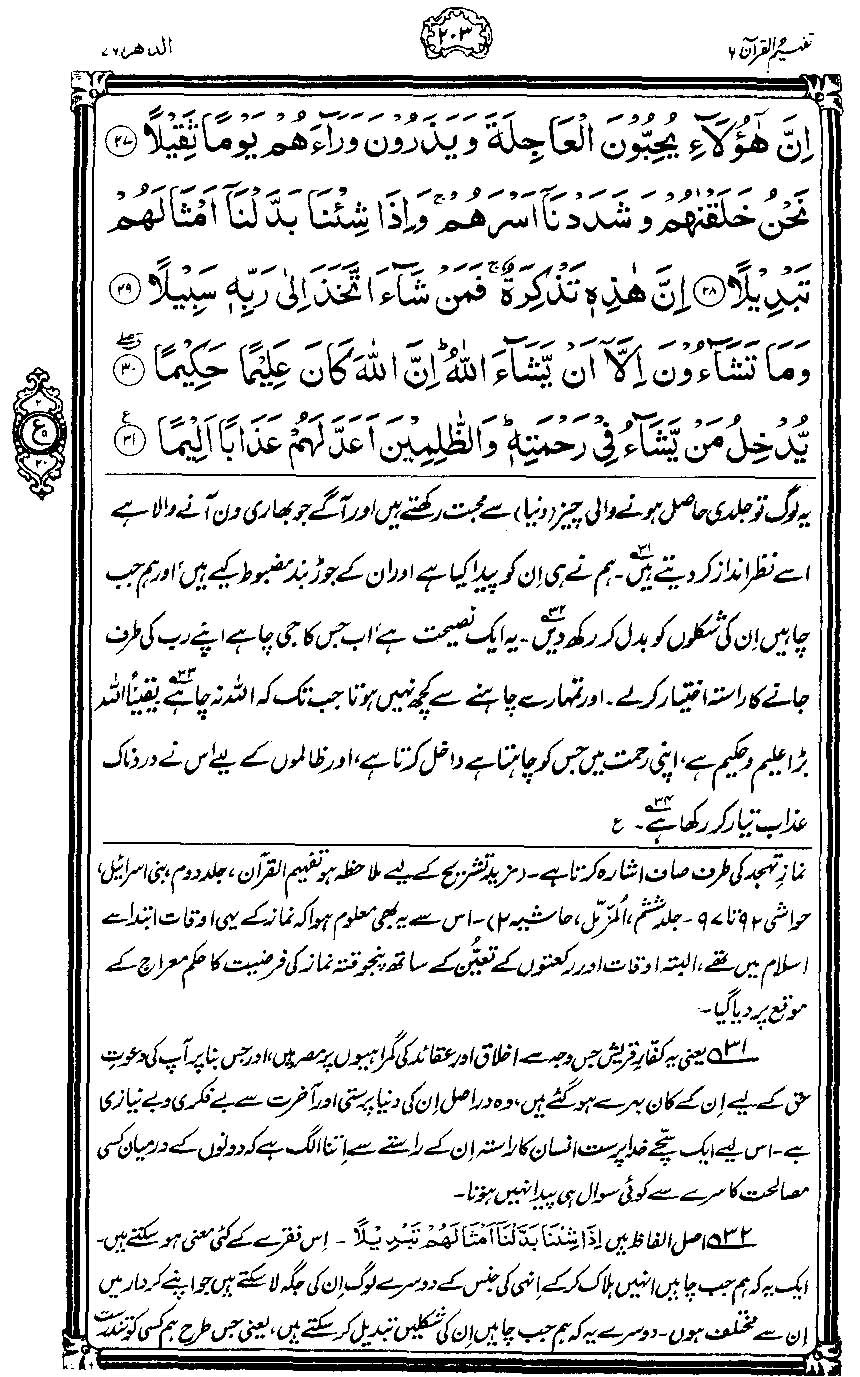 تفہیم القرآن ۶
۲۰۳
الدھر ۷۶
اِنَّ هٰٓؤُلَآءِ يُحِبُّوْنَ الْعَاجِلَةَ وَيَذَرُوْنَ وَرَآءَهُمْ يَوْمًا ثَقِيْلًا ۝۲۷
نَحْنُ خَلَقْنٰهُمْ وَشَدَدْنَآ اَسْرَهُمْ ۚ وَاِذَا شِئْنَا بَدَّلْنَآ اَمْثَالَهُمْ
تَبْدِيْلًا ۝۲۸ اِنَّ هٰذِهٖ تَذْكِرَةٌ ۚ فَمَنْ شَآءَ اتَّخَذَ اِلٰى رَبِّهٖ سَبِيْلًا ۝۲۹
وَمَا تَشَآءُوْنَ اِلَّآ اَنْ يَّشَآءَ اللّٰهُ ؕ اِنَّ اللّٰهَ كَانَ عَلِيْمًا حَكِيْمًا ۝۳۰
يُّدْخِلُ مَنْ يَّشَآءُ فِيْ رَحْمَتِهٖ ؕ وَالظّٰلِمِيْنَ اَعَدَّ لَهُمْ عَذَابًا اَلِيْمًا ۝۳۱
ع
یہ لوگ تو جلدی حاصل ہونے والی چیز (دنیا) سے محبت رکھتے ہیں اور آگے جو بھاری دن آنے والا ہے
اسے نظر انداز کر دیتے ہیں۳۱۔ ہم نے ہی اِن کو پیدا کیا ہے اور ان کے جوڑ بند مضبوط کیے ہیں، اور ہم جب
چاہیں اِن کی شکلوں کو بدل کر رکھ دیں۳۲۔ یہ ایک نصیحت ہے، اب جس کا جی چاہے اپنے رب کی طرف
جانے کا راستہ اختیار کر لے۔ اور تمہارے چاہنے سے کچھ نہیں ہوتا جب تک کہ اللہ نہ چاہے۳۳ یقیناً اللہ
بڑا علیم و حکیم ہے، اپنی رحمت میں جس کو چاہتا ہے داخل کرتا ہے، اور ظالموں کے لیے اس نے دردناک
عذاب تیار کر رکھا ہے۳۴۔ ع
نمازِ تہجد کی طرف صاف اشارہ کرتا ہے۔ (مزید تشریح کے لیے ملاحظہ ہو تفہیم القرآن، جلد دوم، بنی اسرائیل،
حواشی ۹۲ تا ۹۷۔ جلد ششم، المُزّمِّل، حاشیہ ۲)۔ اس سے یہ بھی معلوم ہوا کہ نماز کے یہی اوقات ابتدا سے
اسلام میں تھے، البتہ اوقات اور رکعتوں کے تعیُّن کے ساتھ پنجوقتہ نماز کی فرضیت کا حکم معراج کے
موقع پر دیا گیا۔
۳۱ یعنی یہ کفارِ قریش جس وجہ سے اخلاق اور عقائد کی گمراہیوں پر مصر ہیں، اور جس بنا پر آپ کی دعوتِ
حق کے لیے اِن کے کان بہرے ہو گئے ہیں، وہ دراصل اِن کی دنیا پرستی اور آخرت سے بے فکری و بے نیازی
ہے۔ اس لیے ایک سچّے خدا پرست انسان کا راستہ اِن کے راستے سے اِتنا الگ ہے کہ دونوں کے درمیان کسی
مصالحت کا سرے سے کوئی سوال ہی پیدا نہیں ہوتا۔
۳۲ اصل الفاظ ہیں اِذَا شِئْنَا بَدَّلْنَآ اَمْثَالَهُمْ تَبْدِيْلًا۔ اِس فقرے کے کئی معنی ہو سکتے ہیں۔
ایک یہ کہ ہم جب چاہیں انہیں ہلاک کر کے اِنہی کی جنس کے دوسرے لوگ اِن کی جگہ لا سکتے ہیں جو اپنے کردار میں
اِن سے مختلف ہوں۔ دوسرے یہ کہ ہم جب چاہیں اِن کی شکلیں تبدیل کر سکتے ہیں، یعنی جس طرح ہم کسی کو تندرست